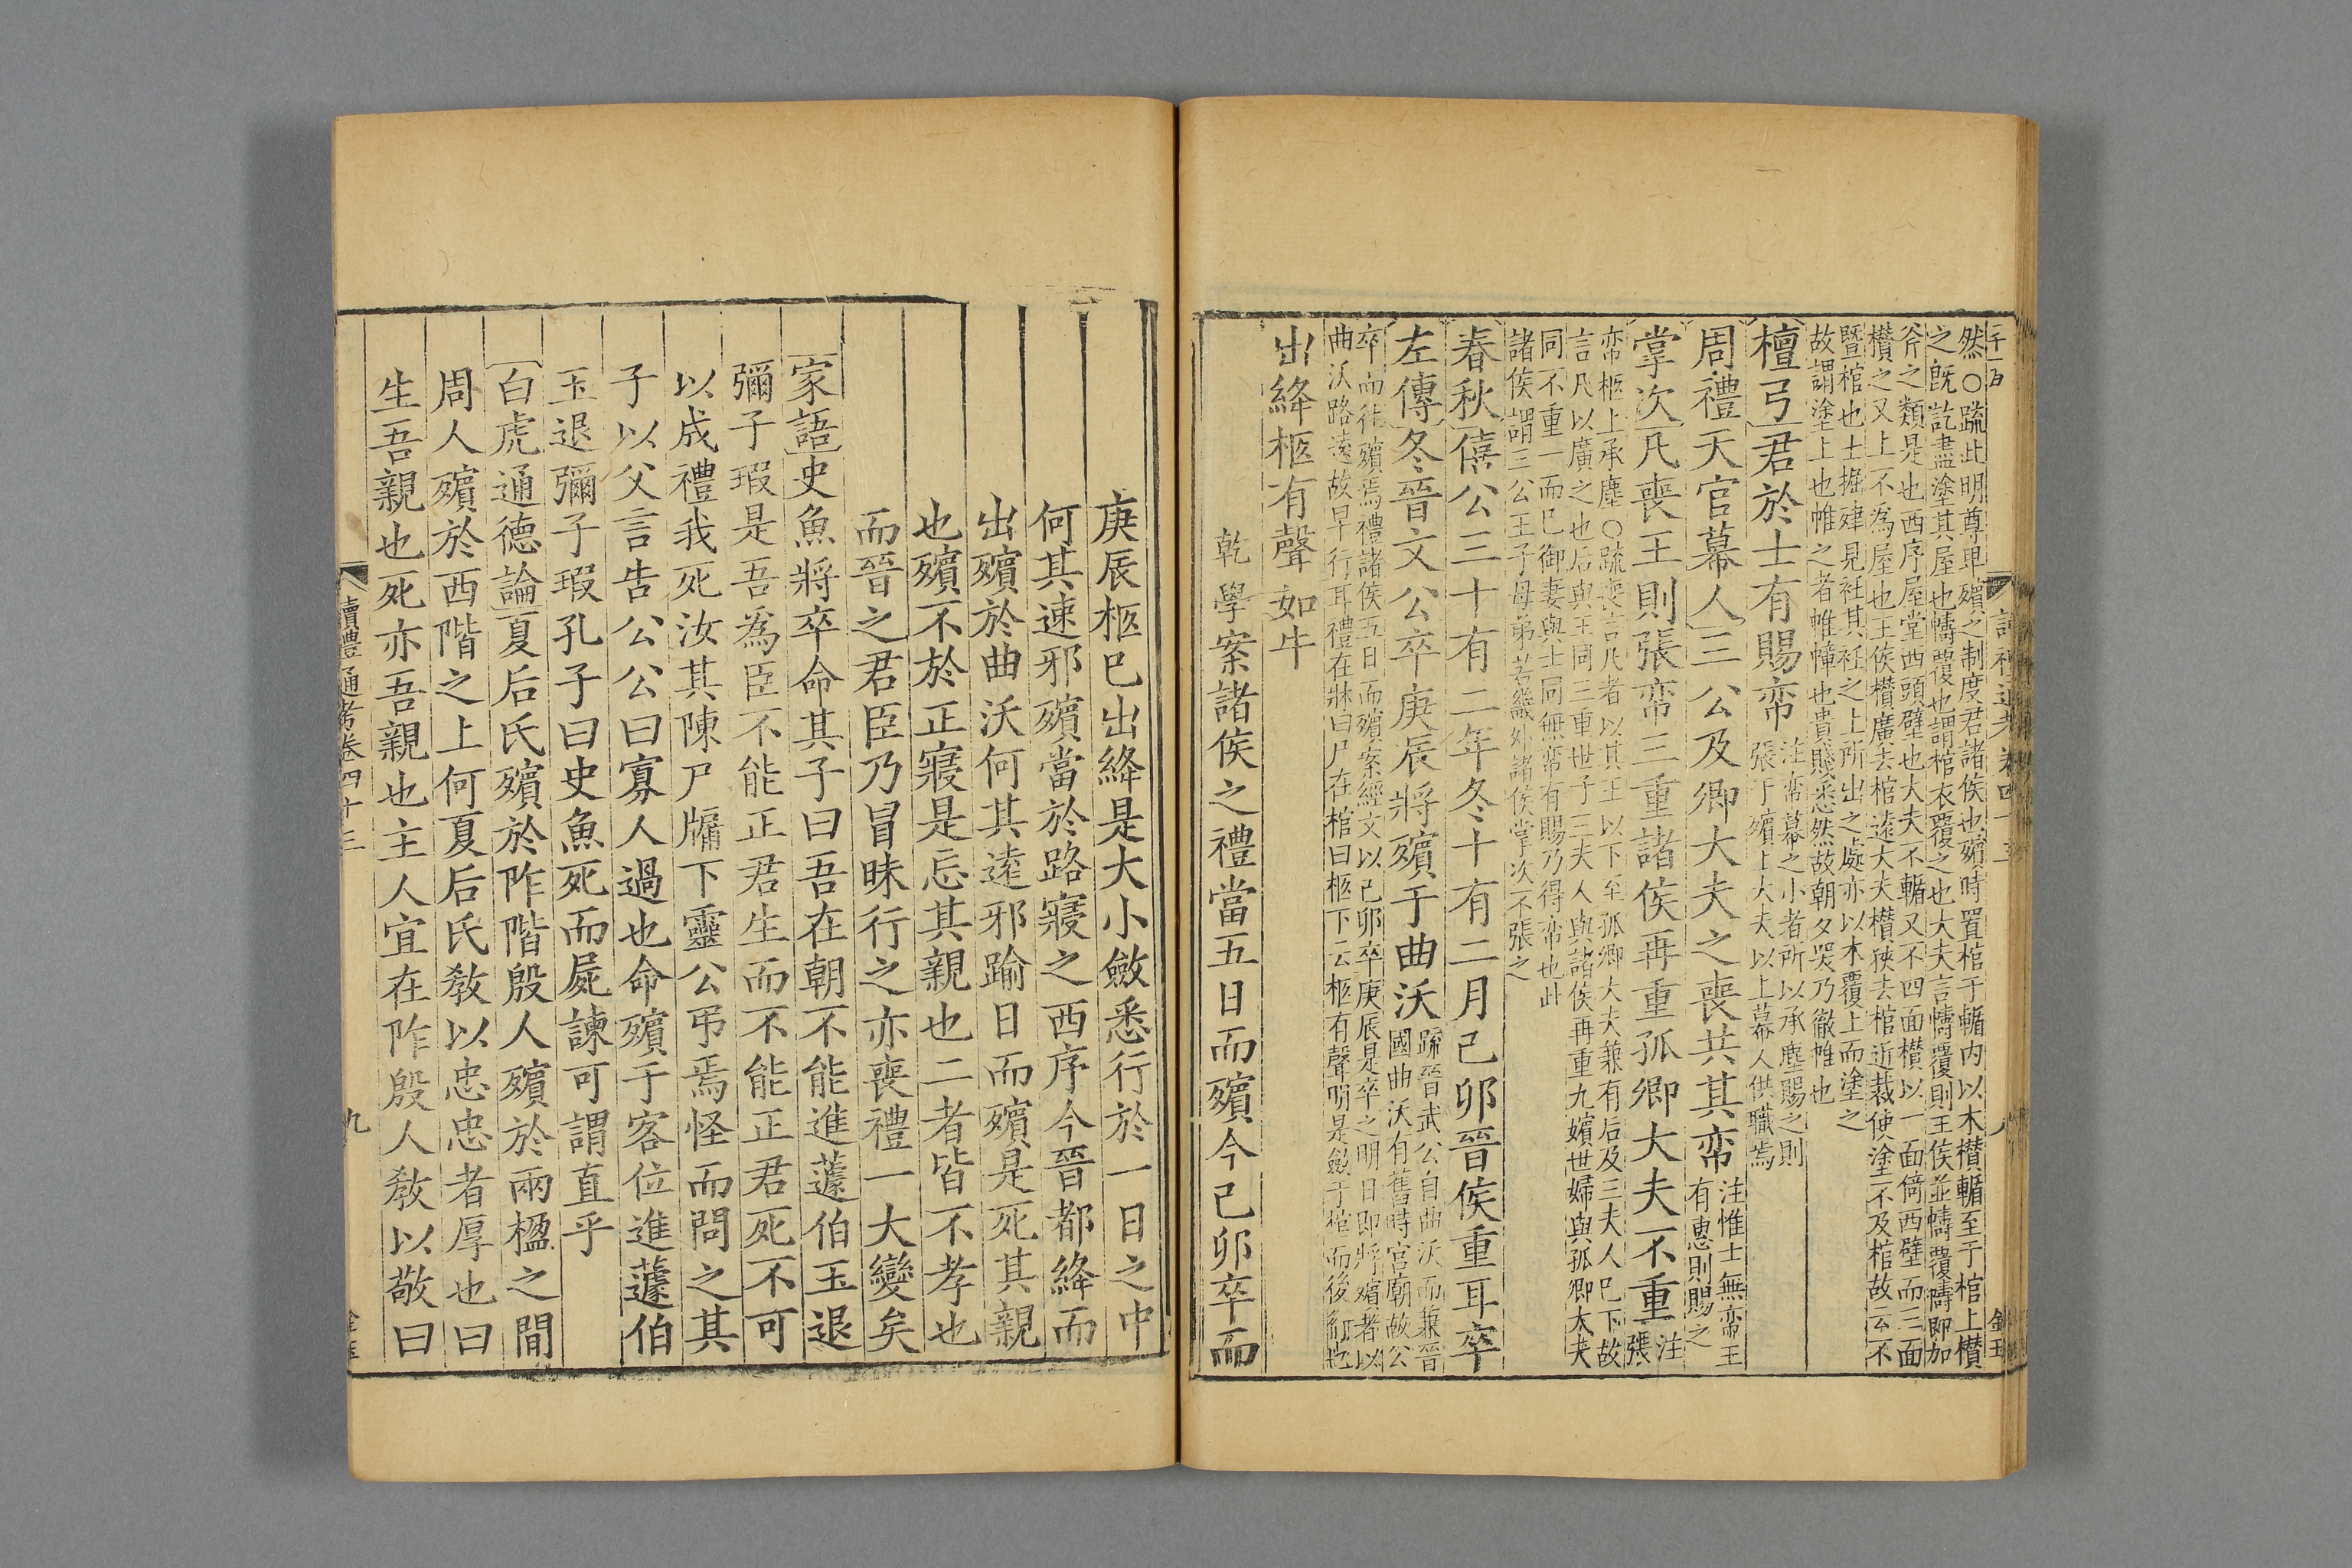 然○疏此明尊卑殯之制度君諸侯也殯時置棺于輴内以木欑輴至于棺上欑
之既訖盡塗其屋也幬覆也謂棺衣覆之也大夫言幬覆則王侯並幬覆幬即加
斧之類是也西序屋堂西頭壁也大夫不輴又不四面欑以一面倚西壁而三面
欑之又上不為屋也王侯欑廣去棺遠大夫欑狹去棺近裁使塗不及棺故云不
暨棺也士掘肂見衽其衽之上所出之處亦以木覆上而塗之
故謂塗上也帷之者帷幛也貴賤悉然故朝夕哭乃徹帷也
檀弓君於士有賜帟注帟幕之小者所以承塵賜之則
張于殯上大夫以上幕人供職焉
周禮天官幕人三公及卿大夫之喪共其帟注惟士無帟王
有惠則賜之
掌次凡喪王則張帟三重諸侯再重孤卿大夫不重注
張
帟柩上承塵○疏喪言凡者以其王以下至孤卿大夫兼有后及三夫人巳下故
言凡以廣之也后與王同三重世子三夫人與諸侯再重九嬪世婦與孤卿大夫
同不重一而已御妻與士同無帟有賜乃得帟也此
諸侯謂三公王子母弟若畿外諸侯掌次不張之
春秋僖公三十有二年冬十有二月己卯晉侯重耳卒
左傳冬晉文公卒庚辰將殯于曲沃疏晉武公自曲沃而兼晉
國曲沃有舊時宮廟故公
卒而往殯焉禮諸侯五日而殯案經文以己卯卒庚辰是卒之明日即將殯者以
曲沃路遠故早行耳禮在牀曰尸在棺曰柩下云柩有聲明是斂于棺而後行也
出絳柩有聲如牛
乾學案諸侯之禮當五日而殯今己卯卒而
庚辰柩已出絳是大小斂悉行於一日之中
何其速邪殯當於路寢之西序今晉都絳而
出殯於曲沃何其遠邪踰日而殯是死其親
也殯不於正寢是忘其親也二者皆不孝也
而晉之君臣乃冒昧行之亦喪禮一大變矣
家語史魚將卒命其子曰吾在朝不能進蘧伯玉退
彌子瑕是吾為臣不能正君生而不能正君死不可
以成禮我死汝其陳尸牖下靈公弔焉怪而問之其
子以父言告公公曰寡人過也命殯于客位進蘧伯
玉退彌子瑕孔子曰史魚死而屍諫可謂直乎
白虎通德論夏后氏殯於阼階殷人殯於兩楹之間
周人殯於西階之上何夏后氏教以忠忠者厚也曰
生吾親也死亦吾親也主人宜在阼殷人教以敬曰
讀禮通考卷四十三
九